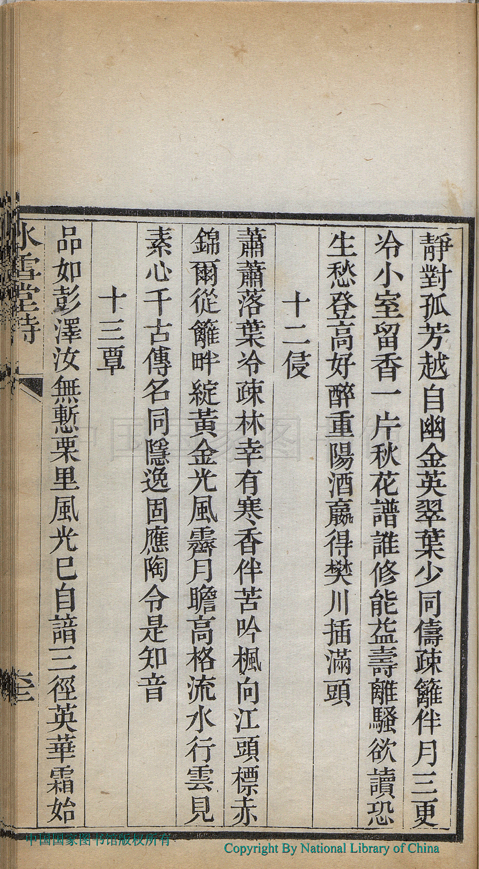 靜對孤芳越自幽金英翠葉少同儔疎籬伴月三更
冷小室留香一片秋花譜誰修能益壽離騷欲讀恐
生愁登高好醉重陽酒羸得樊川插滿頭
十二侵
蕭蕭落葉冷疎林幸有寒香伴苦吟楓向江頭標赤
錦爾從籬畔綻黃金光風霽月瞻高格流水行雲見
素心千古傳名同隱逸固應陶令是知音
十三覃
品如彭澤汝無慙栗里風光已自諳三徑英華霜始
冰雪堂詩
中国国家图书馆版权所有
Copyright By National Library of China